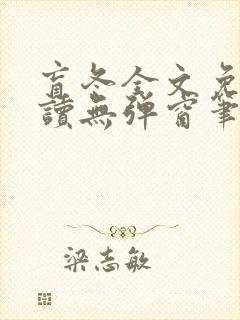 盲冬全文免
讀無彈窗筆
梁志敏